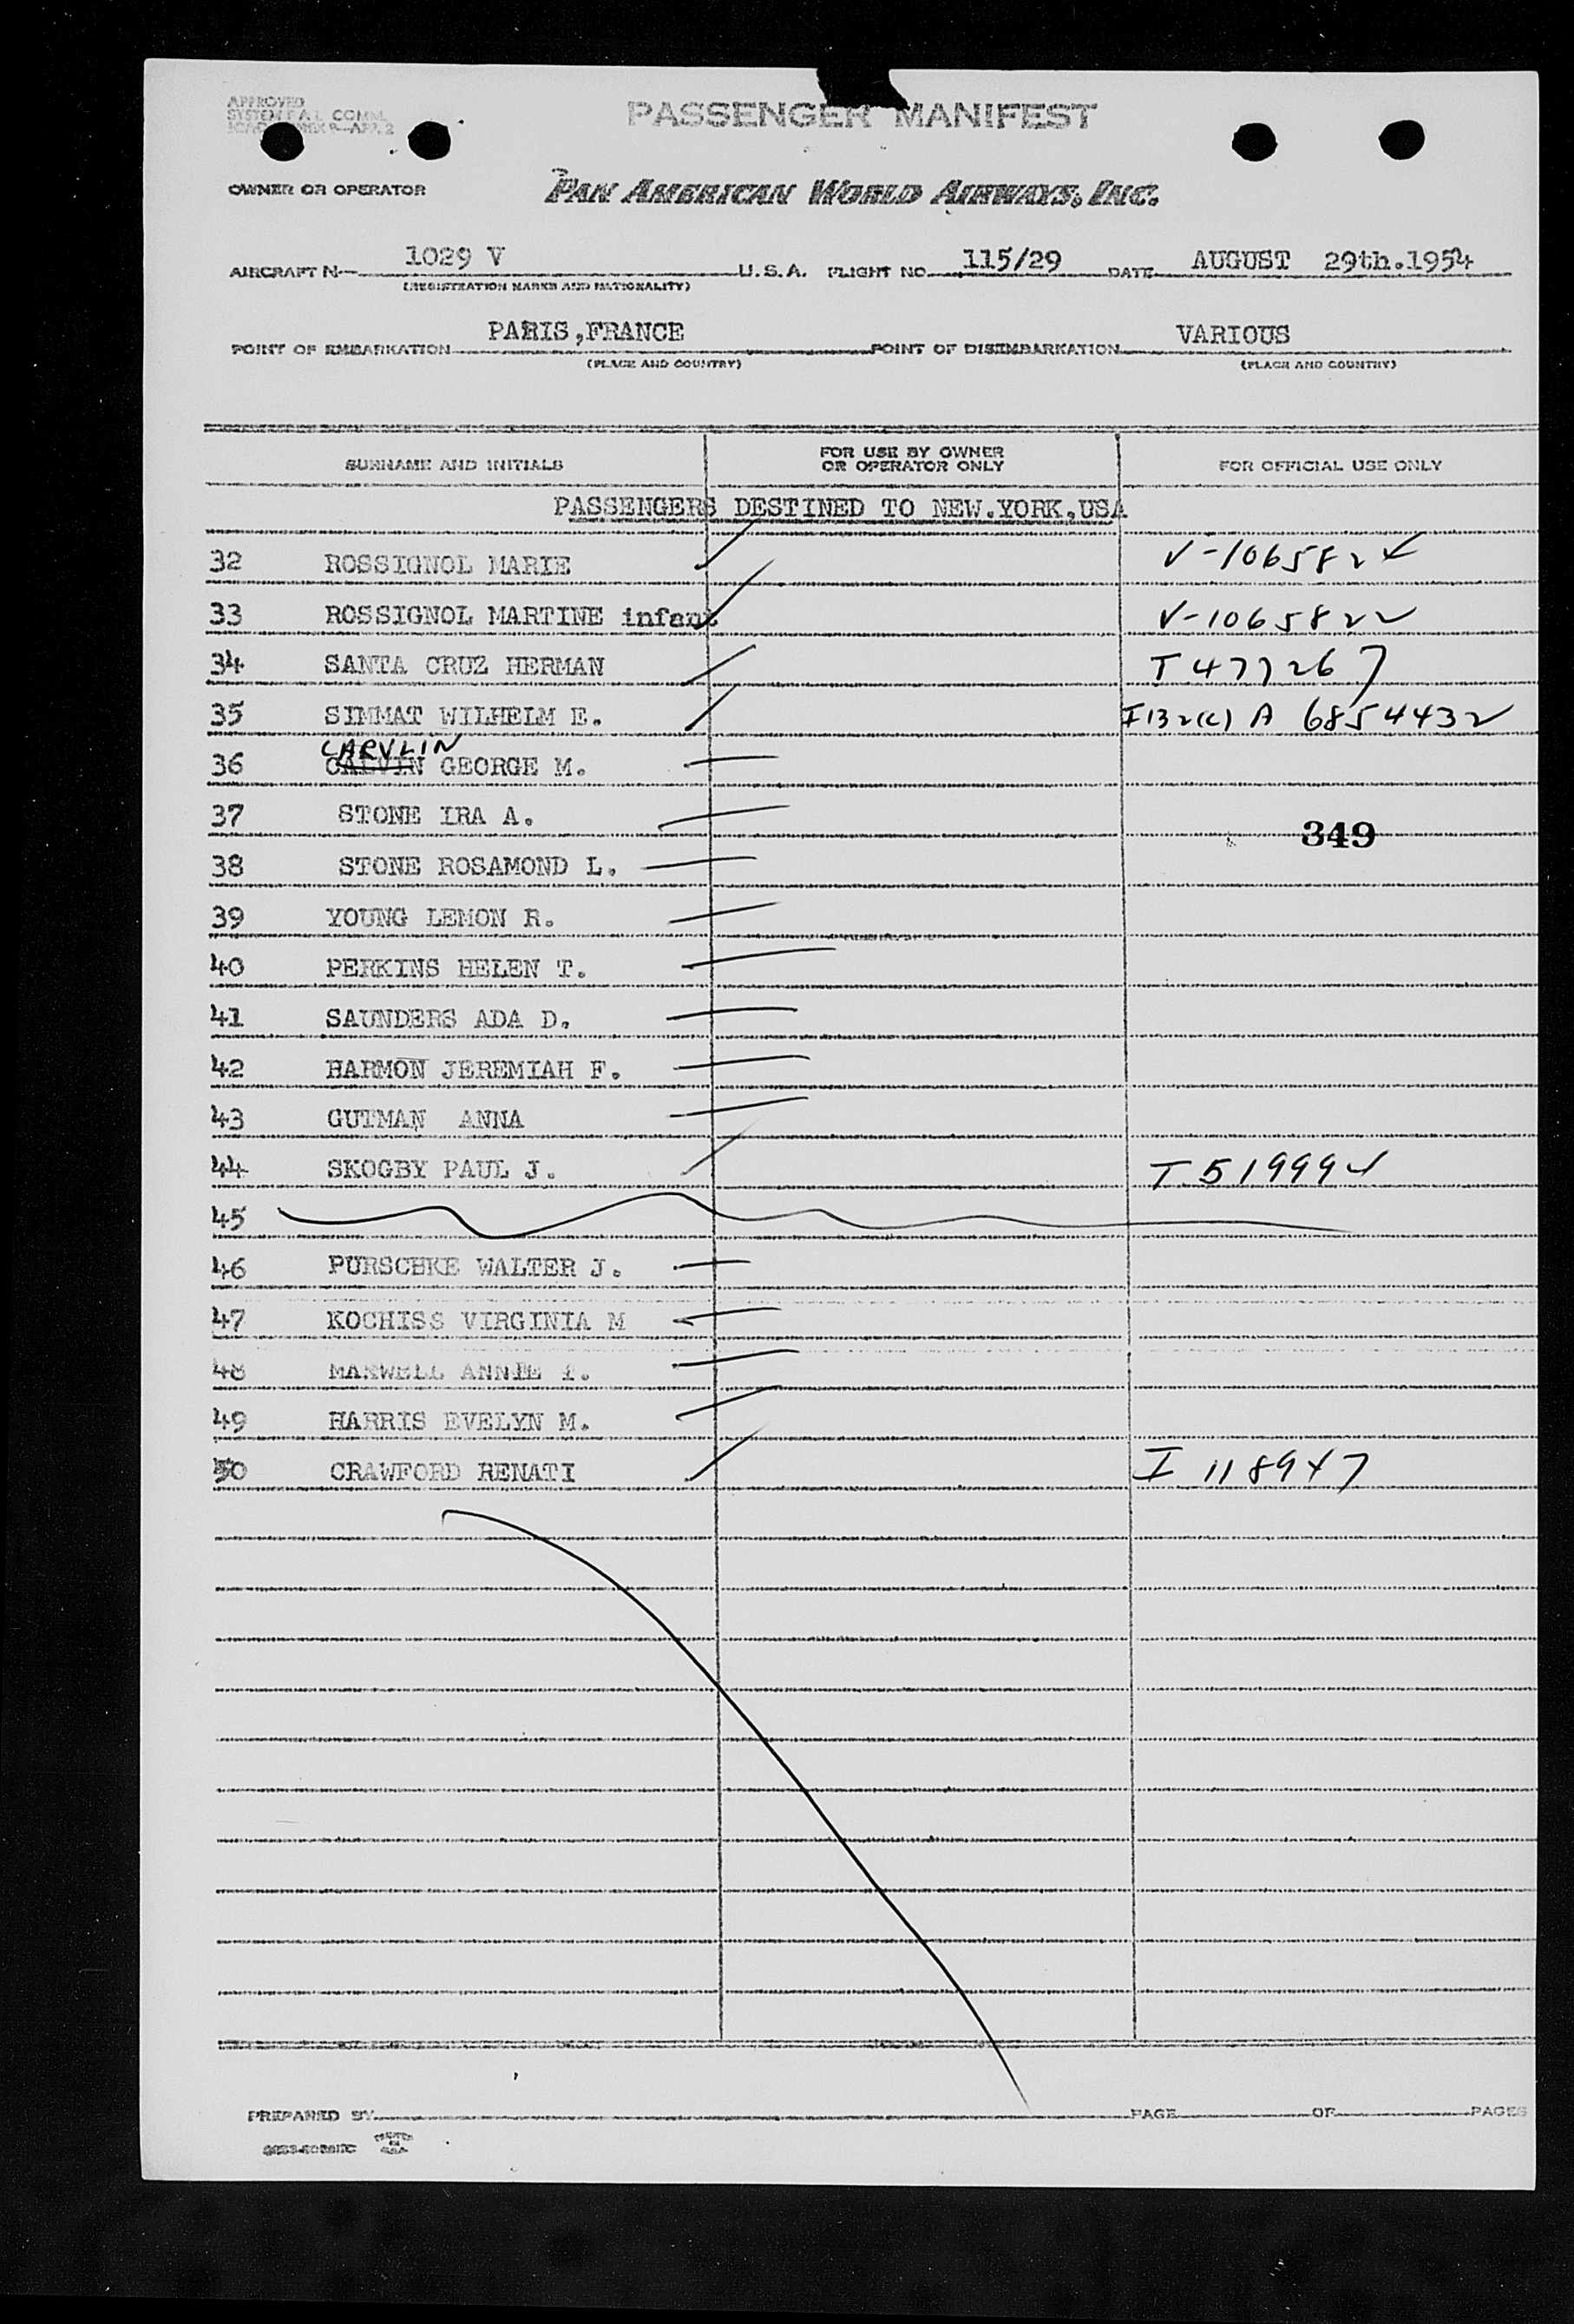 APPROVED
SYSTEM F A L COMM.
PASSENGER MANIFEST
OWNER OR OPERATOR PAN AMERICAN WORLD AIRWAYS, INC.
AIRCRAFT N— 1029 V U.S.A. FLIGHT NO 115/29 DATE AUGUST 29th.1954
(REGISTRATION MARKS AND NATIONALITY)
POINT OF EMBARKATION PARIS,FRANCE POINT OF DISEMBARKATION VARIOUS
(PLACE AND COUNTRY) (PLACE AND COUNTRY)
SURNAME AND INITIALS FOR USE BY OWNER OR OPERATOR ONLY FOR OFFICIAL USE ONLY
PASSENGERS DESTINED TO NEW.YORK.USA
32 ROSSIGNOL MARIE V-1065824
33 ROSSIGNOL MARTINE infant V-1065822
34 SANTA CRUZ HERMAN T 477267
35 SIMMAT WILHELM E. I 132(c) A 6854432
CARVLIN
36 CALVIN GEORGE M.
37 STONE IRA A.
349
38 STONE ROSAMOND L.
39 YOUNG LEMON R.
40 PERKINS HELEN T.
41 SAUNDERS ADA D.
42 HARMON JEREMIAH F.
43 GUTMAN ANNA
44 SKOGBY PAUL J. T 519994
45
46 PURSCHKE WALTER J.
47 KOCHISS VIRGINIA M
48 MAXWELL ANNIE
49 HARRIS EVELYN M.
50 CRAWFORD RENATI I 118947
PREPARED BY PAGE OF PAGES